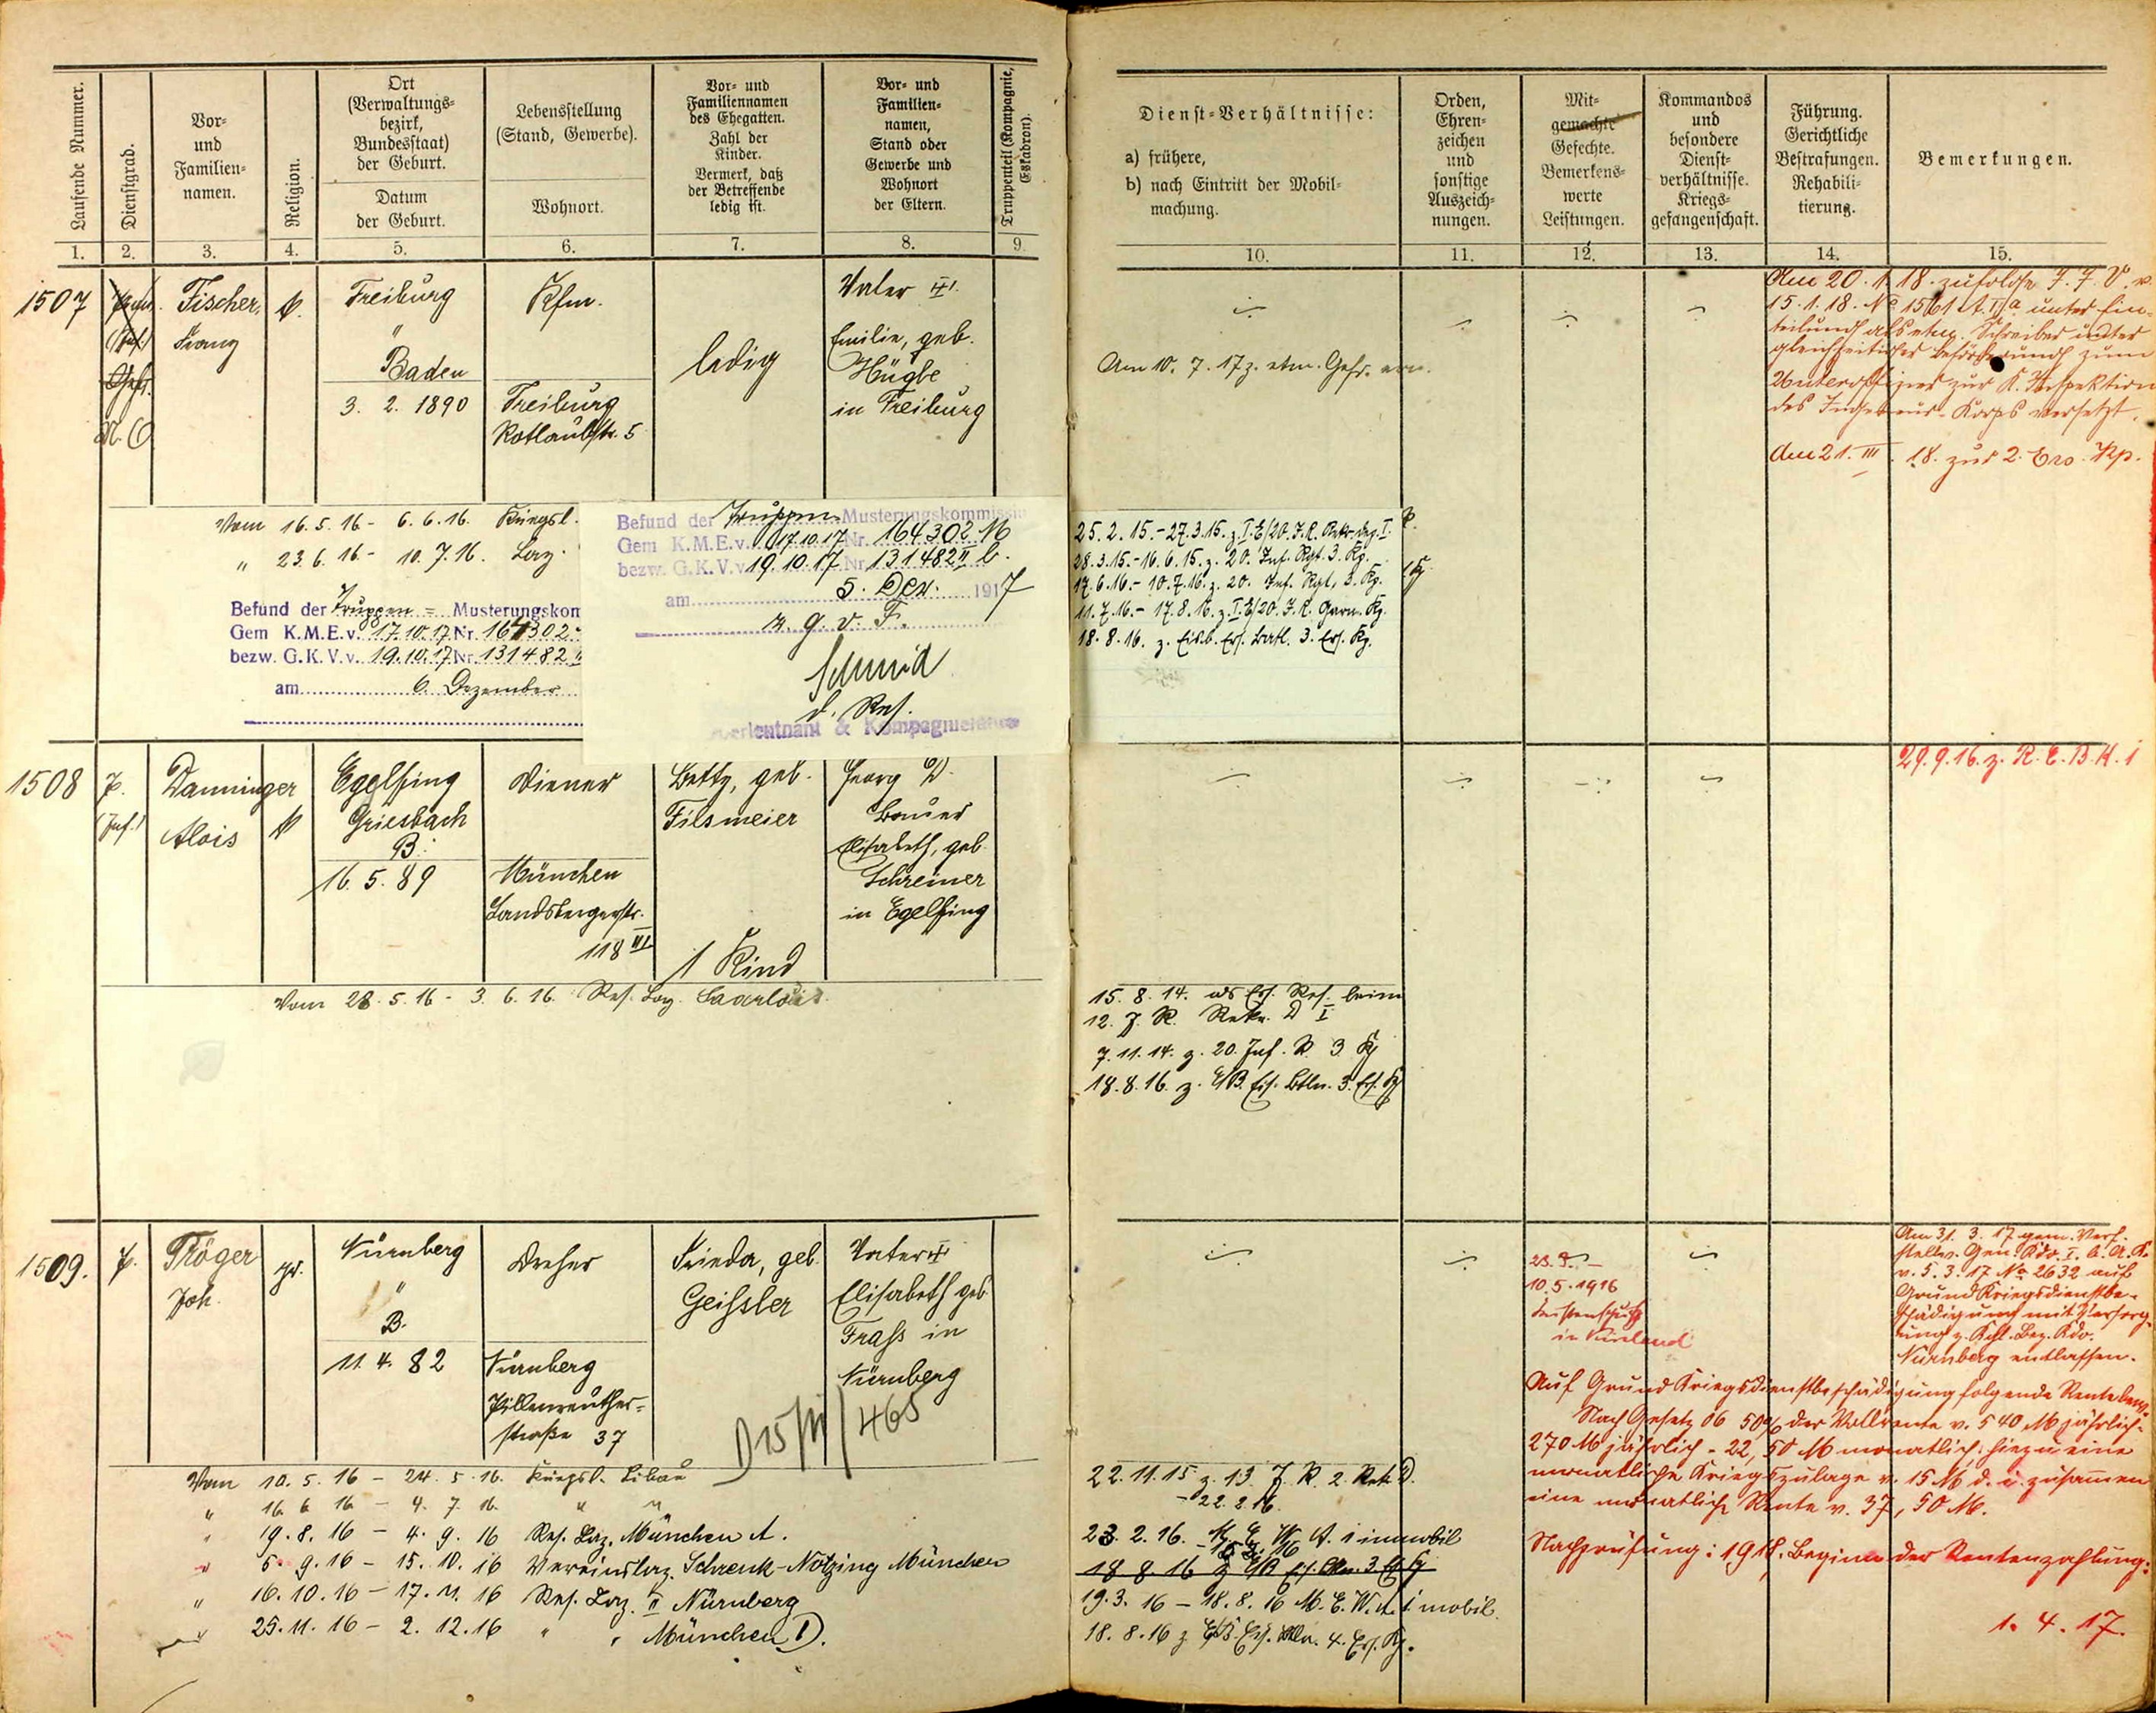 Laufende Nummer.
Dienstgrad.
Vor-
und
Familien-
namen.
Religion.
Ort
(Verwaltungs-
bezirk,
Bundesstaat)
der Geburt.
Datum
der Geburt.
Lebensstellung
(Stand, Gewerbe).
Wohnort.
Vor- und
Familiennamen
des Ehegatten.
Zahl der
Kinder.
Vermerk, daß
der Betreffende
ledig ist.
Vor- und
Familien-
namen,
Stand oder
Gewerbe und
Wohnort
der Eltern.
Truppenteil (Kompagnie,
Eskadron).
1. 2. 3. 4. 5. 6. 7. 8. 9.
1507
(Inf.)
Gefr.
Fischer,
Franz
k.
Freiburg
"
Baden
3. 2. 1890
Kfm.
Freiburg
Rotlaubstr. 5
ledig
Vater
Emilie, geb.
Hügle
in Freiburg
Vom 16. 5. 16 - 6. 6. 16. Kriegsl.
" 23. 6. 16 - 10. 7. 16. Laz.
Befund der Truppen = Musterungskom
Gem K.M.E.v. 17.10.17 Nr. 164302
bezw. G.K.V.v. 19.10.17 Nr. 131482 II
am 6. Dezember
Befund der Truppen-Musterungskommissi
Gem K.M.E.v. 17.10.17 Nr. 164302 M
bezw. G.K.V.v 19.10.17 Nr. 131482 II b.
am 5. Dez. 1917
g. v. F.
Schmid
d. Res.
erleutnant & Kompagnieführe
1508
J.
(Inf.)
Danninger
Alois
k
Egelfing
Griesbach
B.
16. 5. 89
Diener
München
Landsbergerstr.
118 III
Betty, geb.
Filsmeier
1 Kind
Georg D.
Bauer
Elisabeth, geb.
Schreiner
in Egelfing
Vom 28. 5. 16 - 3. 6. 16. Res. Laz. Saarlouis.
1509.
J.
Tröger
Joh.
pr.
Nürnberg
"
B.
11. 4. 82
Dreher
Nürnberg
Pillenreuther-
straße 37
Frieda, geb.
Geissler
Vater
Elisabeth geb.
Frass in
Nürnberg
D15/III/465
Vom 10. 5. 16 - 24. 5. 16. Kriegsl. Libau
" 16. 6. 16 - 4. 7. 16. " "
" 19. 8. 16 - 4. 9. 16 Res. Laz. München A.
" 5. 9. 16 - 15. 10. 16 Vereinslaz. Schrenk-Notzing München
" 16. 10. 16 - 17. 11. 16 Res. Laz. II Nürnberg
" 25. 11. 16 - 2. 12. 16 " " München D.
Dienst-Verhältnisse:
a) frühere,
b) nach Eintritt der Mobil-
machung.
Orden,
Ehren-
zeichen
und
sonstige
Auszeich-
nungen.
Mit-
gemachte
Gefechte.
Bemerkens-
werte
Leistungen.
Kommandos
und
besondere
Dienst-
verhältnisse.
Kriegs-
gefangenschaft.
Führung.
Gerichtliche
Bestrafungen.
Rehabili-
tierung.
Bemerkungen.
10. 11. 12. 13. 14. 15.
Am 10. 7. 17 z. etm. Gefr. ern.
Am 20. 1. 18. zufolge J. J. V. v.
15. 1. 18. No 1561 A. I/a unter Ein-
teilung als etm. Schreiber unter
gleichzeitiger Beförderung zum
Unteroffizier zur K. Inspektion
des Ingenieur-Korps versetzt.
Am 21. III. 18. zur 2. Ers. Kp.
25. 2. 15. - 27. 3. 15. z. I. E/20. J.R. Rekr. dep. I.
28. 3. 15. - 16. 6. 15. z. 20. Inf. Rgt. 3. Kp.
17. 6. 16. - 10. 7. 16. z. 20. Inf. Rgt. 3. Kp.
11. 7. 16. - 17. 8. 16. z. I. E/20. J.R. Garn. Kp.
18. 8. 16. z. Eisb. Ers. Batl. 3. Ers. Kp.
29. 9. 16. z. R. E. B. K. 1
15. 8. 14. als Ers. Res. beim
12. J. R. Rekr. D I
7. 11. 14. z. 20. Inf. R. 3. Kp
18. 8. 16. z. E/B. Ers. Btln. 3. Ers. Kp
10. 5. 1916
in Kurland
Am 31. 3. 17 gem. Verf.
stellv. Gen. Kdo. I. b. A. K.
v. 5. 3. 17 No 2632 auf
Grund Kriegsdienstbe-
schädigung mit Versorg-
ung z. Kgl. Bez. Kdo.
Nürnberg entlassen.
Auf Grund Kriegsdienstbeschädigung folgende Rente bew.
Nach Gesetz 06 50% der Vollrente v. 540 M jährlich =
270 M jährlich - 22,50 M monatlich, hiezu eine
monatliche Kriegszulage v. 15 M d. i. zusammen
eine monatliche Rente v. 37,50 M.
Nachprüfung: 1918. Beginn der Rentenzahlung:
1. 4. 17.
22. 11. 15 z. 13. J. R. 2. Rek. D.
- 22. 2. 16.
23. 2. 16. - M. E. W. A. 1 immobil
18. 8. 16 z. E/B Ers. Btln. 3. Ers. Kp
19. 3. 16 - 18. 8. 16 M. E. W. A. 1 mobil.
18. 8. 16 z. E/B. Ers. Btln. 4. Ers. Kp.